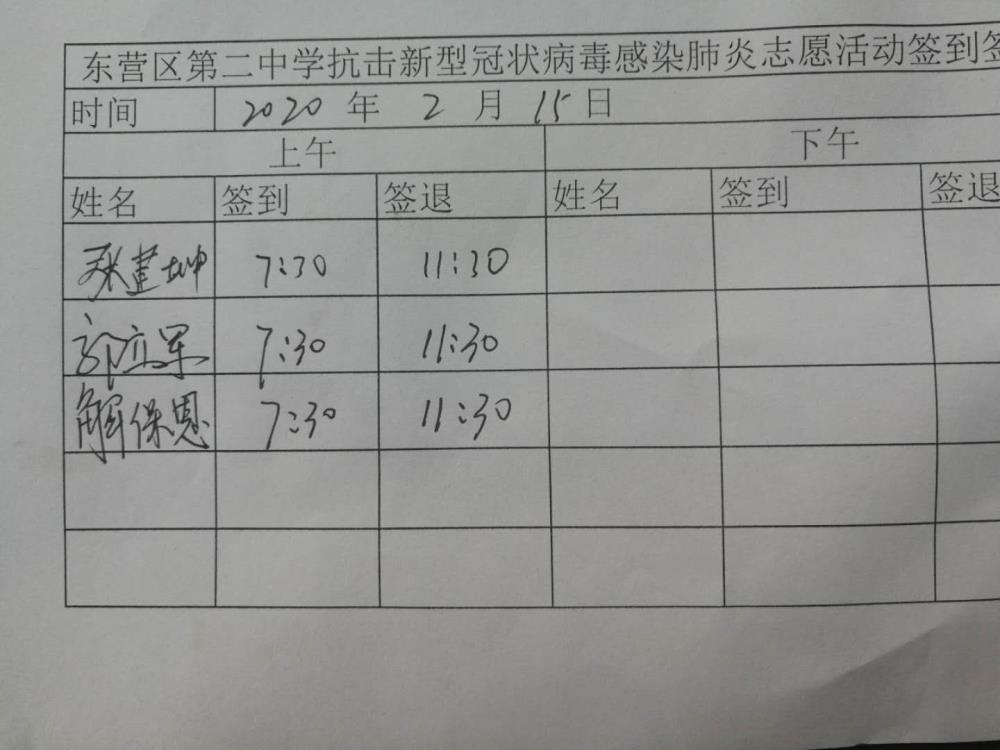 东营区第二中学抗击新型冠状病毒感染肺炎志愿活动签到签
时间 2020 年 2 月 15 日
上午 下午
姓名 签到 签退 姓名 签到 签退
张建坤 7:30 11:30
郭立军 7:30 11:30
解保恩 7:30 11:30